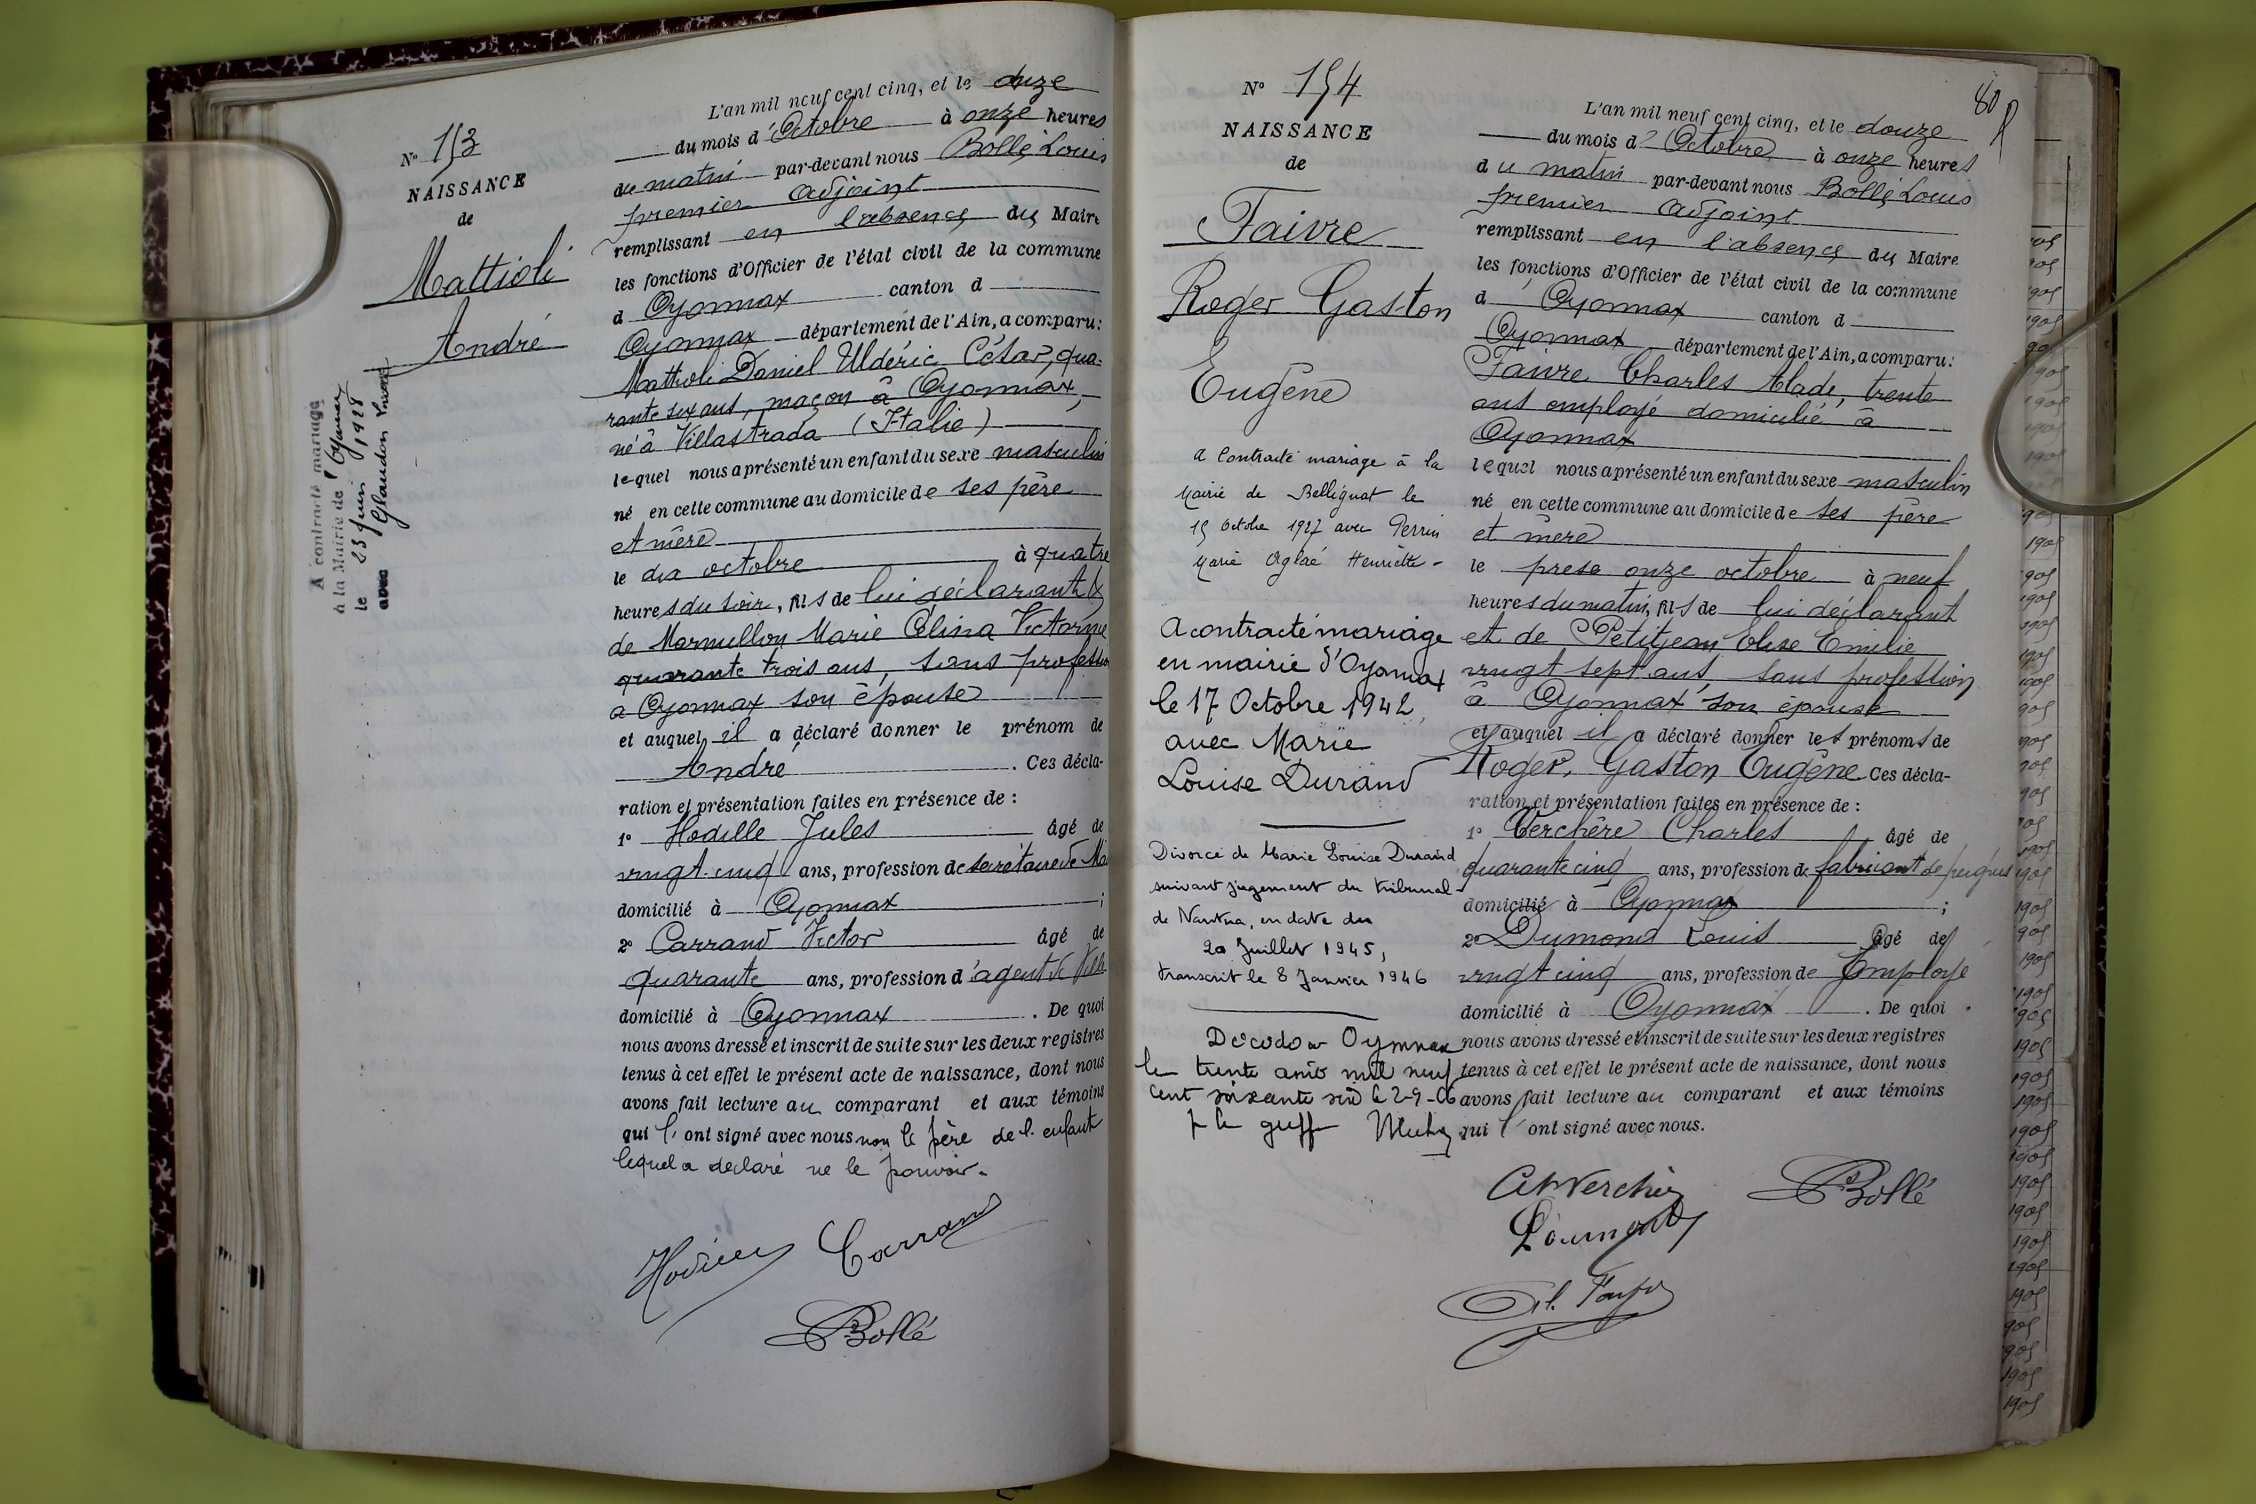 N° 153
NAISSANCE
de
Mattioli
André
A contracté mariage
à la Mairie de Oyonnax
le 23 juin 1928
avec Glaudon
L'an mil neuf cent cinq, et le onze
du mois d'Octobre à onze heures
du matin par-devant nous Bollé Louis
premier adjoint
remplissant en l'absence du Maire
les fonctions d'Officier de l'état civil de la commune
d Oyonnax canton d
Oyonnax département de l'Ain, a comparu:
Mattioli Daniel Uldéric César, qua-
rante six ans, maçon à Oyonnax,
né à Villastrada (Italie)
lequel nous a présenté un enfant du sexe masculin
né en cette commune au domicile de ses père
et mère
le dix octobre à quatre
heures du soir, fils de lui déclarant &
de Marmillon Marie Célina Victorine
quarante trois ans, sans profession
à Oyonnax son épouse
et auquel il a déclaré donner le prénom de
André. Ces décla-
ration et présentation faites en présence de :
1° Hodille Jules âgé de
vingt-cinq ans, profession de secrétaire de Mai
domicilié à Oyonnax ;
2° Carrand Victor âgé de
quarante ans, profession d'agent de
domicilié à Oyonnax. De quoi
nous avons dressé et inscrit de suite sur les deux registres
tenus à cet effet le présent acte de naissance, dont nous
avons fait lecture au comparant et aux témoins
qui l'ont signé avec nous non le père de l'enfant
lequel a déclaré ne le pouvoir.
Carrand
Bollé
80
N° 154
NAISSANCE
de
Faivre
Roger Gaston
Eugène
a contracté mariage à la
Mairie de Bellignat le
15 octobre 1927 avec Perrin
Marie Aglaé Henriette -
A contracté mariage
en mairie d'Oyonnax
le 17 Octobre 1942,
avec Marie
Louise Durand
Divorcé de Marie Louise Durand
suivant jugement du tribunal
de Nantua, en date du
20 Juillet 1945,
transcrit le 8 Janvier 1946
Décédé à Oyonnax
le trente août mil neuf
cent soixante six le 2-9-66
p le greff
L'an mil neuf cent cinq, et le douze
du mois d'Octobre à onze heures
du matin par-devant nous Bollé Louis
premier adjoint
remplissant en l'absence du Maire
les fonctions d'Officier de l'état civil de la commune
d Oyonnax canton d
Oyonnax département de l'Ain, a comparu:
Faivre Charles Alade, trente
ans employé domicilié à
Oyonnax
lequel nous a présenté un enfant du sexe masculin
né en cette commune au domicile de ses père
et mère
le onze octobre à neuf
heures du matin, fils de lui déclarant
et de Petitjean Elise Emilie
vingt sept ans, sans profession
à Oyonnax son épouse
et auquel il a déclaré donner les prénoms de
Roger, Gaston Eugène. Ces décla-
ration et présentation faites en présence de :
1° Verchère Charles âgé de
quarante cinq ans, profession de fabricant de peignes
domicilié à Oyonnax ;
2° Dumond Louis âgé de
vingt cinq ans, profession de Employé
domicilié à Oyonnax. De quoi
nous avons dressé et inscrit de suite sur les deux registres
tenus à cet effet le présent acte de naissance, dont nous
avons fait lecture au comparant et aux témoins
qui l'ont signé avec nous.
Bollé